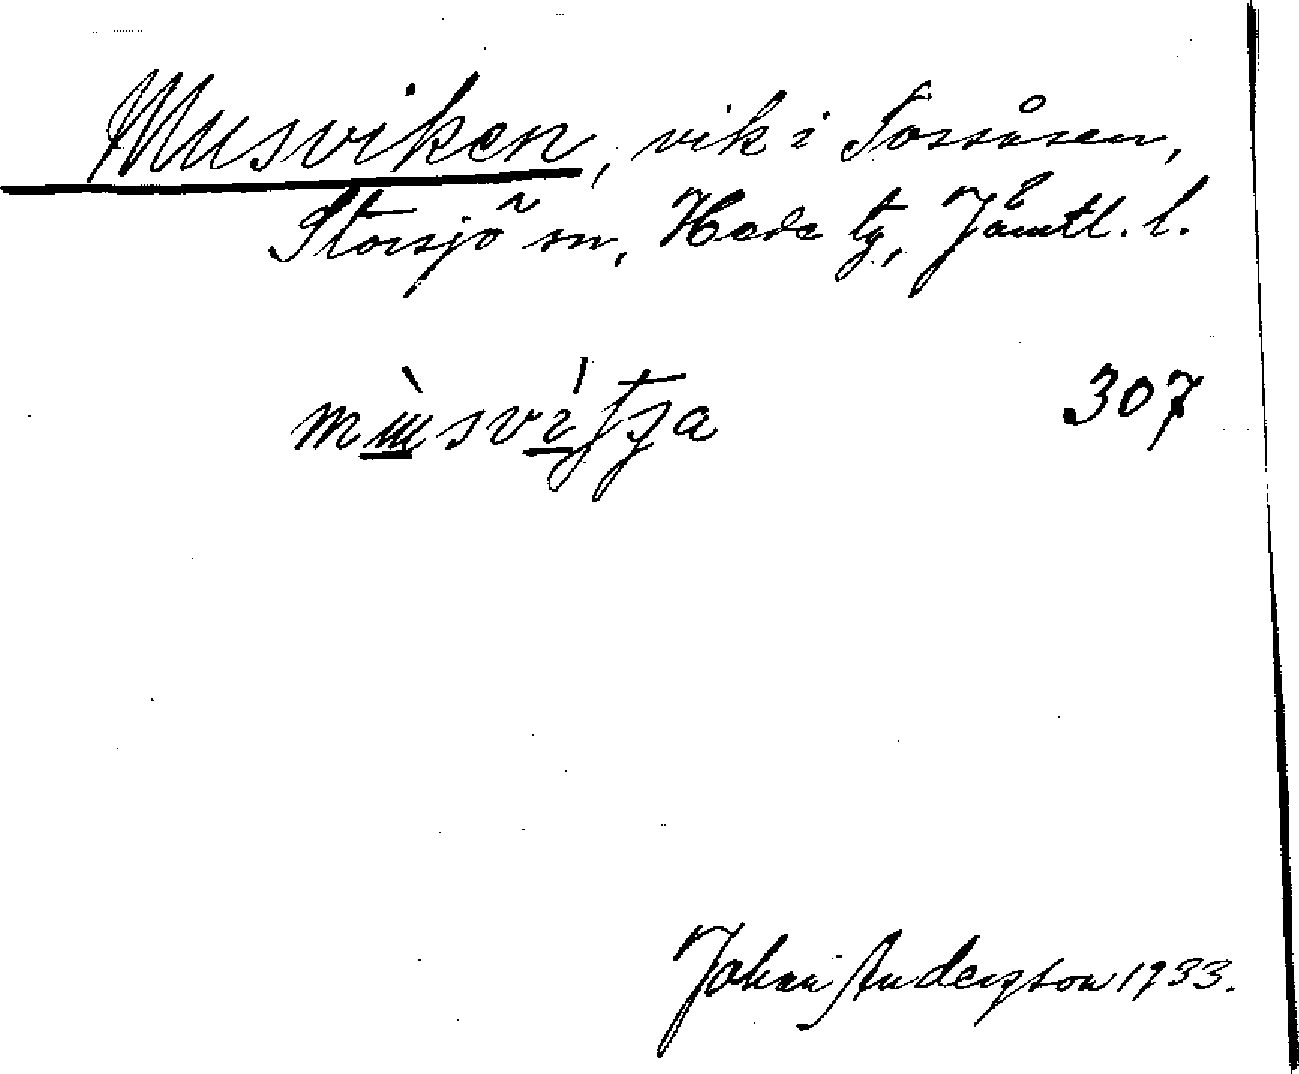 Musviken, vik i Tossåsen,
Storsjö sn, Hede tg, Jämtl. l.
307
Johan Andersson 1933.